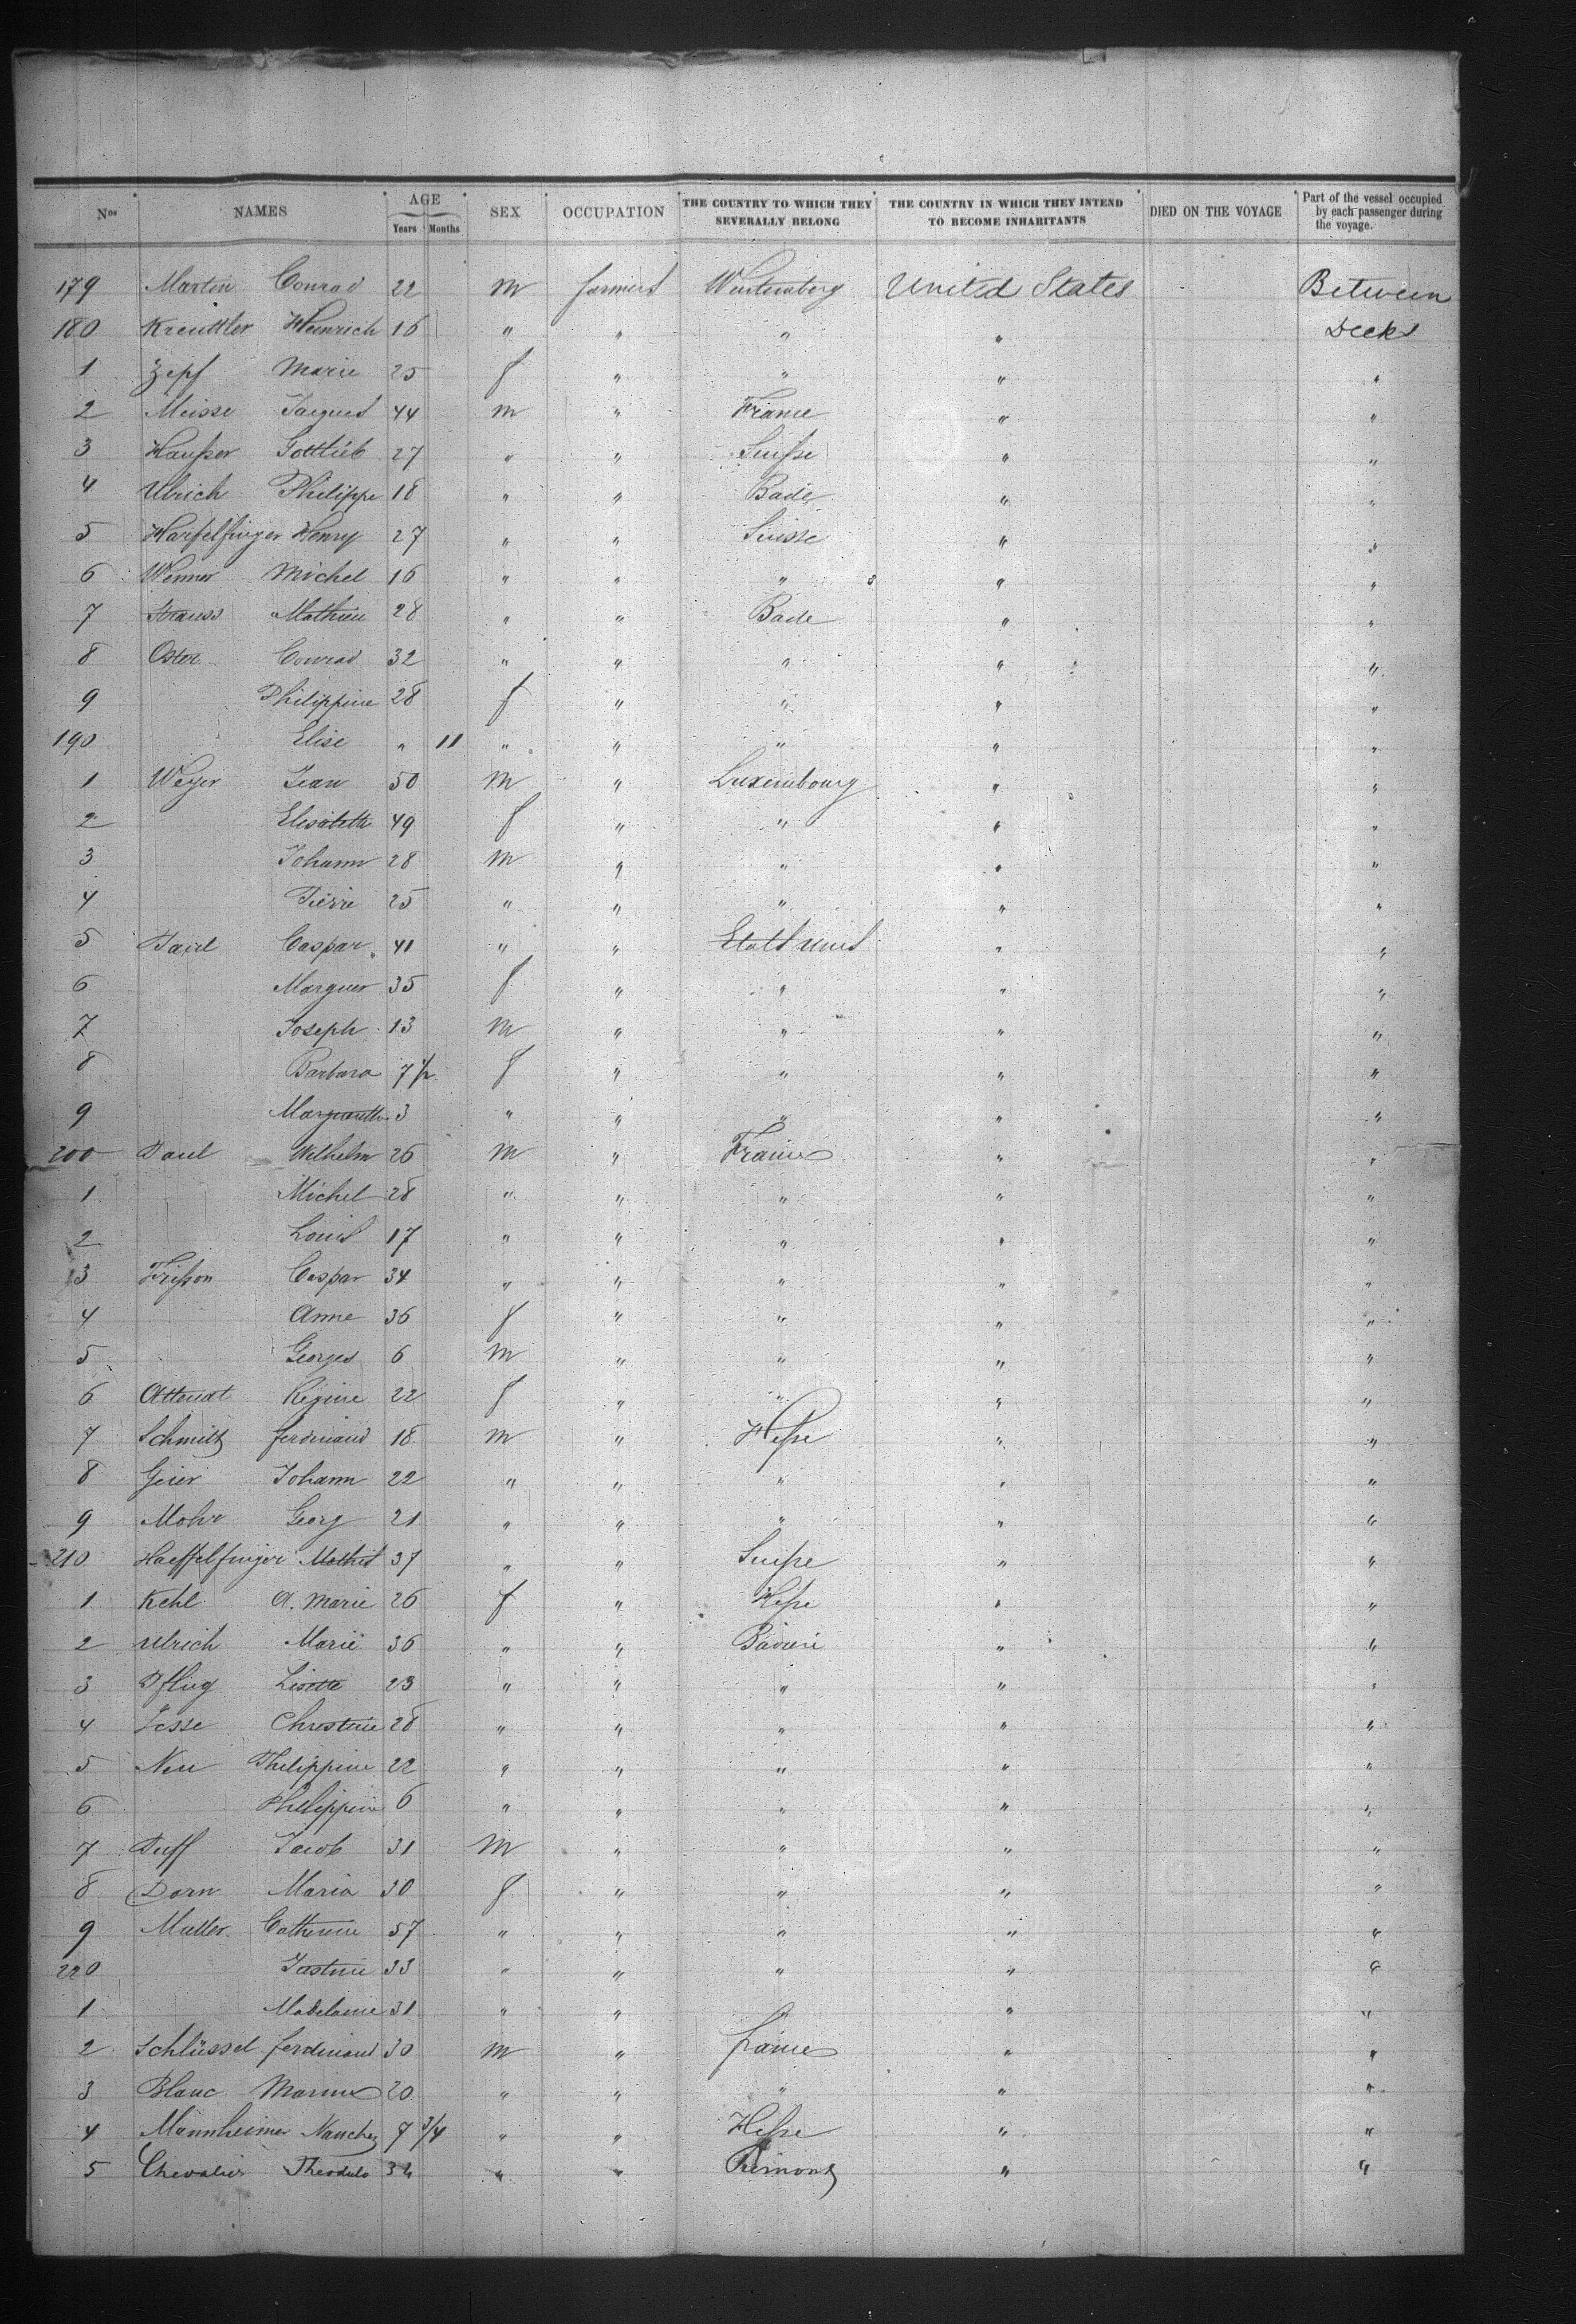 Nos NAMES AGE Years Months SEX OCCUPATION THE COUNTRY TO WHICH THEY SEVERALLY BELONG THE COUNTRY IN WHICH THEY INTEND TO BECOME INHABITANTS DIED ON THE VOYAGE Part of the vessel occupied by each passenger during the voyage.
179 Martin Conrad 22 M farmers Wurtemberg United States Between
180 Kreuttler Heinrich 16 " " " " Decks
1 Zepf Marie 25 f " " " "
2 Meisse Jacques 44 M " France " "
3 Hausser Gottlieb 27 " " Suisse " "
4 Ulrich Philippe 18 " " Bade " "
5 Henry 27 " " Suisse " "
6 Wenner Michel 16 " " " " "
7 Strauss Mathieu 28 " " Bade " "
8 Oster Conrad 32 " " " " "
9 Philippine 28 f " " " "
190 Elise " 11 " " " " "
1 Weyer Jean 50 M " Luxembourg " "
2 Elisabeth 49 f " " " "
3 Johann 28 M " " " "
4 Pierre 25 " " " " "
5 Paul Caspar 41 " " Etats unis " "
6 Marguer 35 f " " " "
7 Joseph 13 M " " " "
8 Barbara 7 1/2 f " " " "
9 Margueritte 3 " " " " "
200 Paul Wilhelm 26 M " France " "
1 Michel 28 " " " " "
2 Louis 17 " " " " "
3 Frisson Caspar 34 " " " " "
4 Anne 36 f " " " "
5 Georges 6 M " " " "
6 Regine 22 f " " " "
7 Schmitt ferdinand 18 M " Hesse " "
8 Geier Johann 22 " " " " "
9 Mohr Georg 21 " " " " "
210 Haeffelfinger Mathis 37 " " Suisse " "
1 Kehl A. Marie 26 f " Hesse " "
2 Ulrich Marie 36 " " Baviere " "
3 Pflug Lisette 23 " " " " "
4 Jesse Christine 28 " " " " "
5 Neu Philippine 22 " " " " "
6 Philippine 6 " " " " "
7 Puff Jacob 31 M " " " "
8 Dorn Maria 30 f " " " "
9 Muller Catherine 57 " " " " "
220 Justine 33 " " " " "
1 Madelaine 31 " " " " "
2 Schlüssel ferdinand 30 M " france " "
3 Blanc 20 " " " " "
4 Mannheimer 7 3/4 " " Hesse " "
5 Chevalier Theodule 34 " " Piemont " "